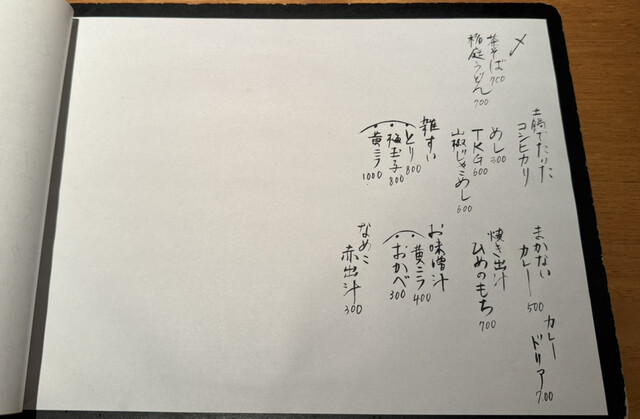 〆
茶そば 700
稲庭うどん 700
土鍋でたいた
コシヒカリ
めし 300
TKG 600
山椒じゃこめし 600
雑すい
とり 800
梅玉子 800
黄ニラ 1000
まかない
カレー 500
カレー
ドリア 700
焼き出汁
ひめのもち 700
お味噌汁
黄ニラ 400
おかべ 300
なめこ
赤出汁 300